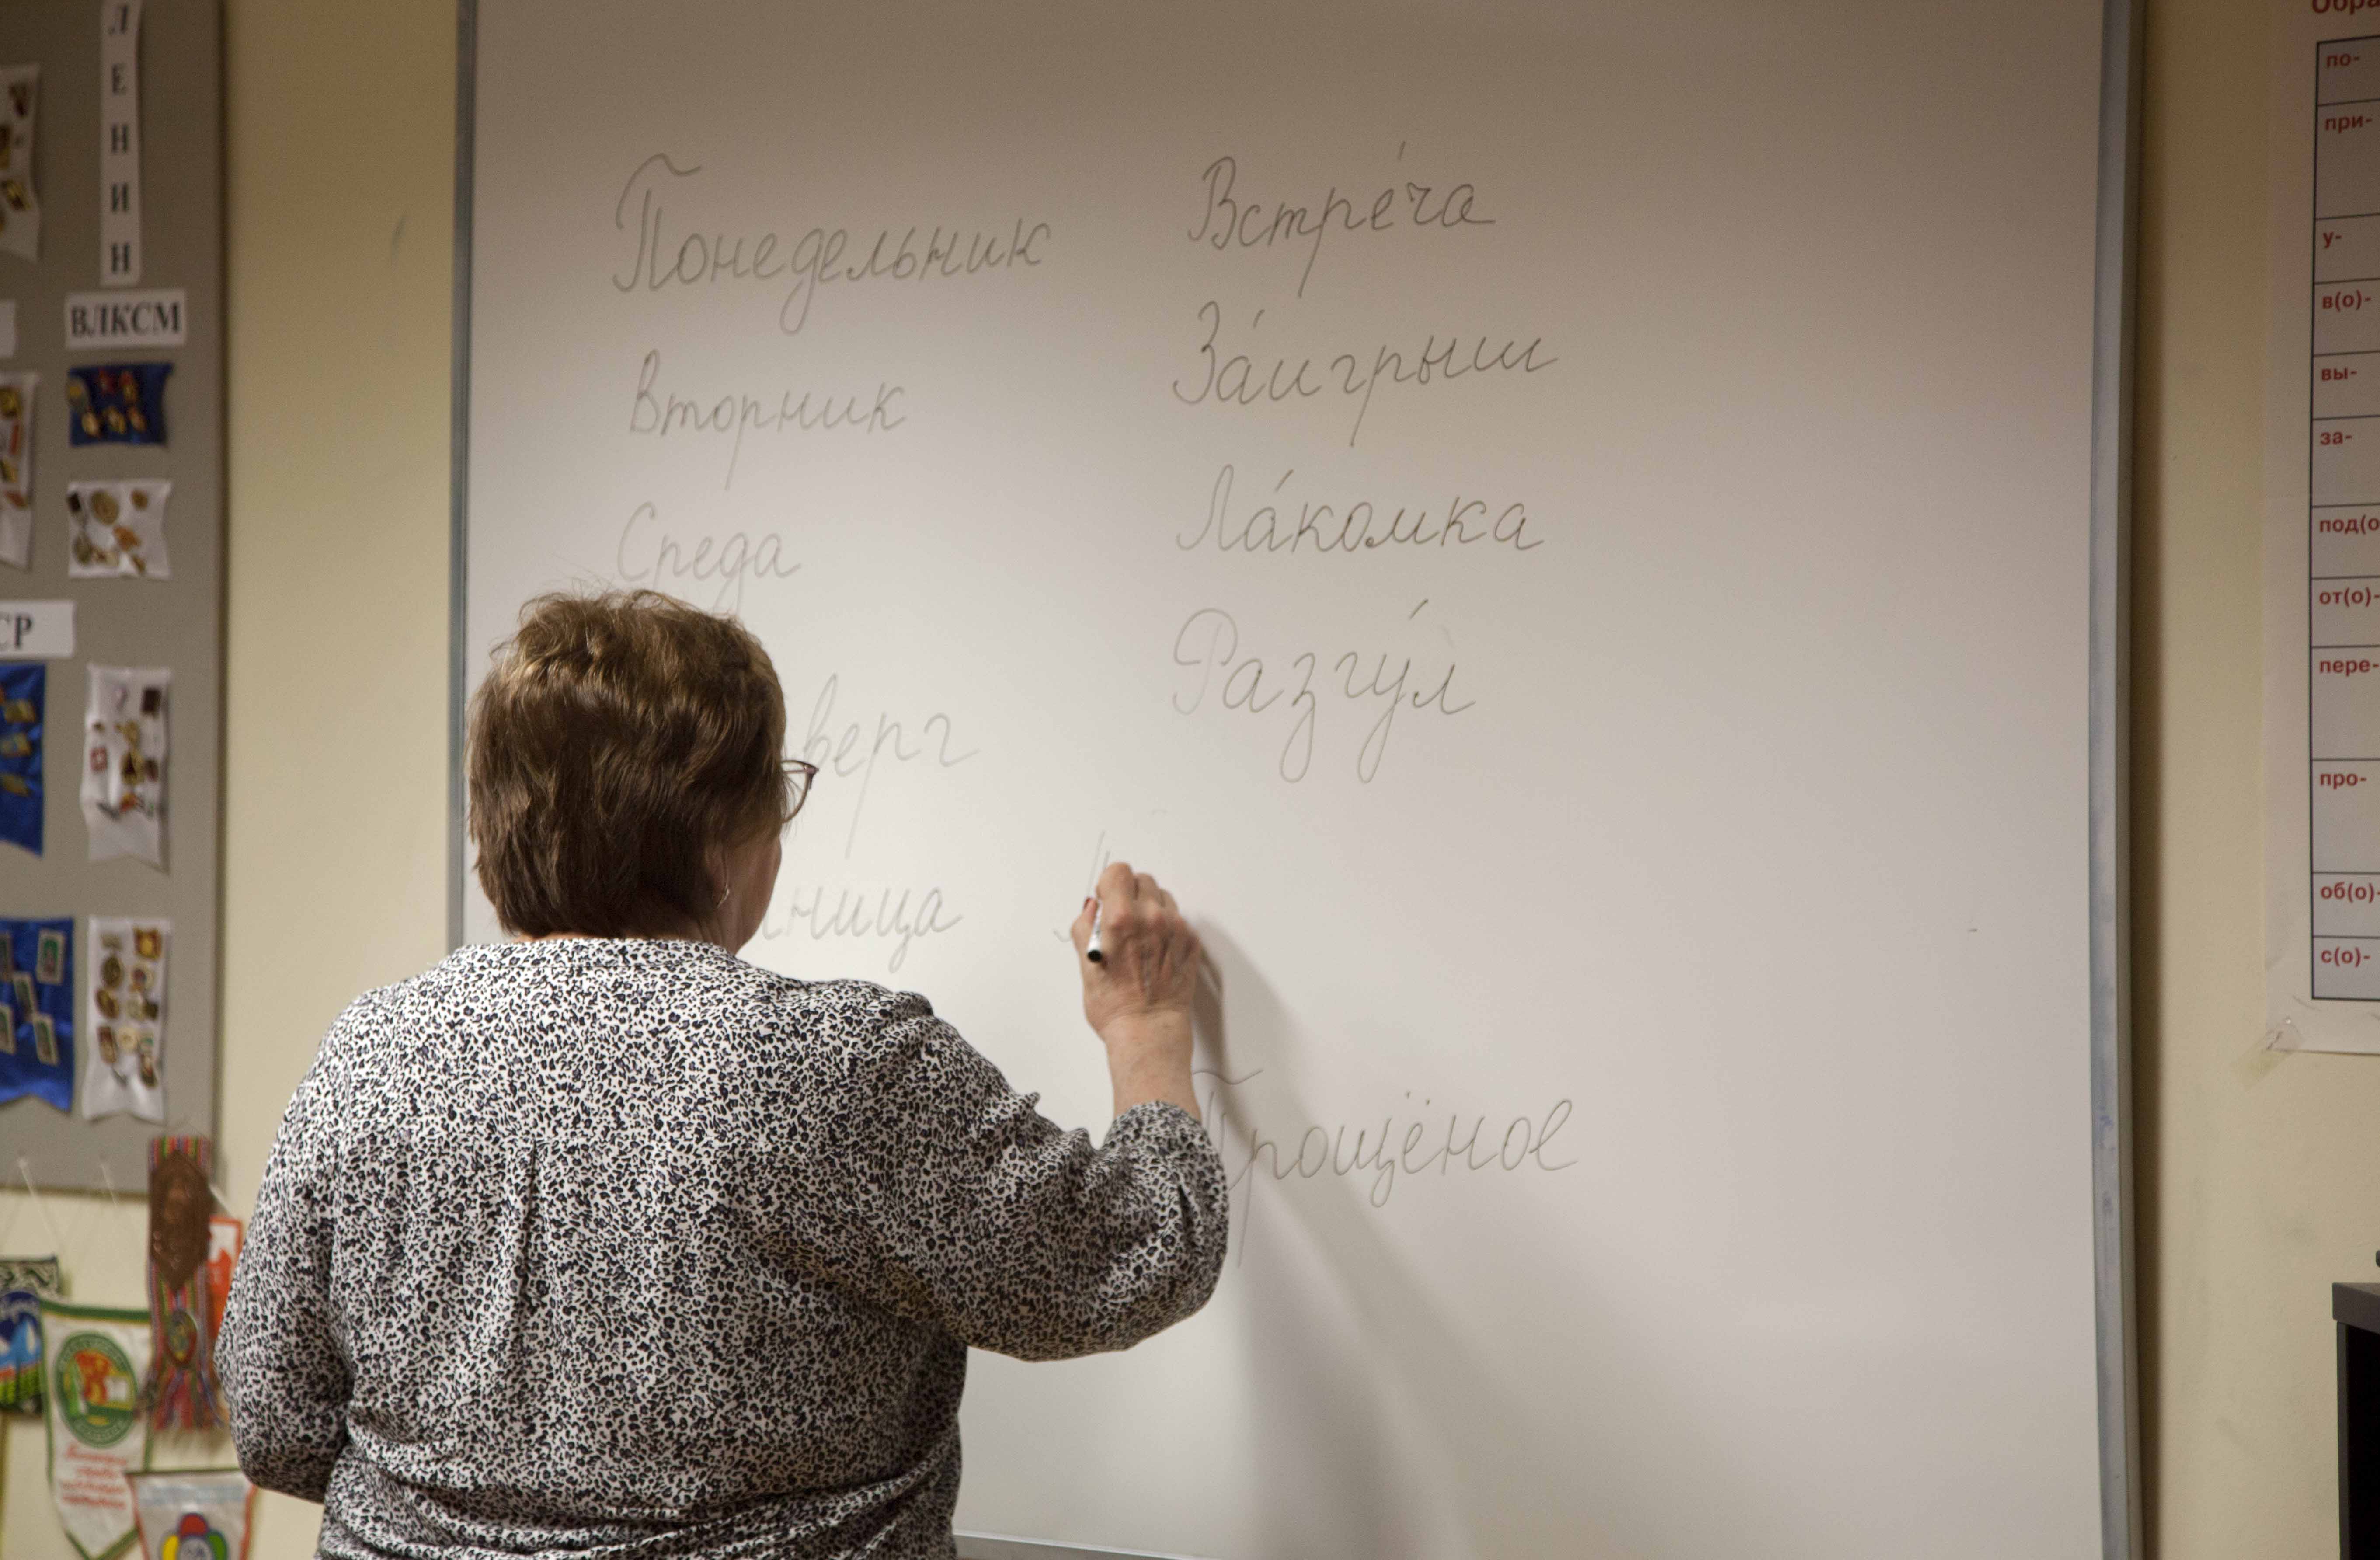 ЛЕНИН
ВЛКСМ
Понедельник
Вторник
Среда
Встре́ча
За́игрыш
Ла́комка
Разгу́л
Прощёное
по-
при-
у-
в(о)-
вы-
за-
под(о
от(о)-
пере-
про-
об(о)-
с(о)-